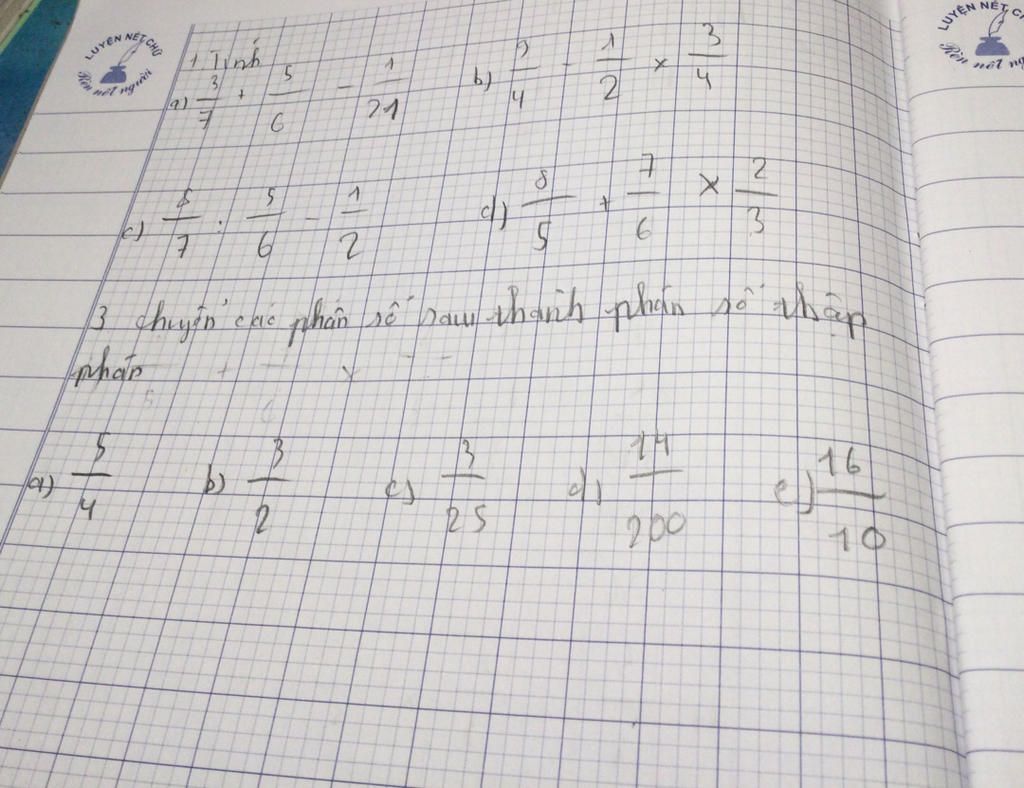 LUYỆN NÉT CHỮ
Rèn nết người
LUYỆN NÉT CHỮ
Rèn nết người
1 Tính
a) 3/7 + 5/6 - 1/21 b) 3/4 - 1/2 × 3/4
c) 5/7 : 5/6 - 1/2 d) 8/5 + 7/6 × 2/3
3 chuyển các phân số sau thành phân số thập
phân
a) 5/4 b) 3/2 c) 3/25 d) 14/200 e) 16/10